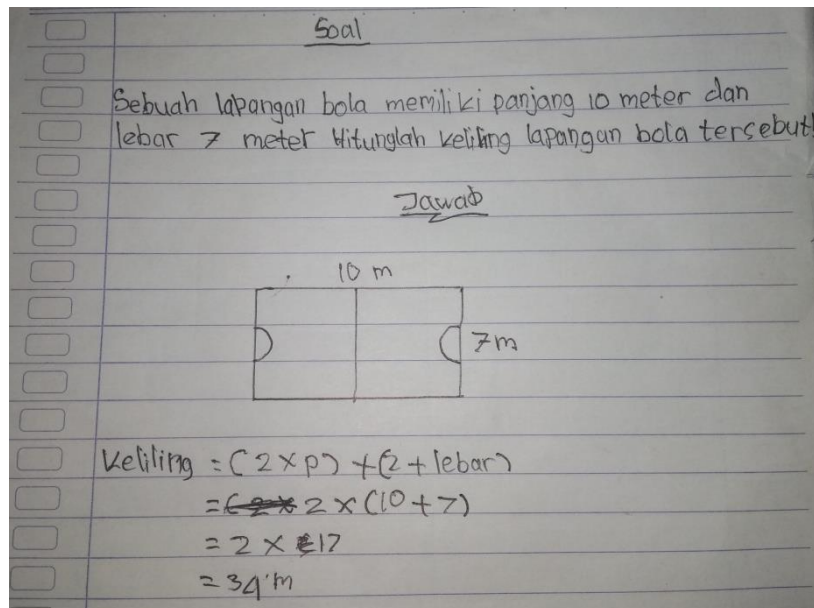 Soal
Sebuah lapangan bola memiliki panjang 10 meter dan
lebar 7 meter Hitunglah keliling lapangan bola tersebut!
Jawab
10 m
7m
Keliling = (2 x p) + (2 + lebar)
= 2 x (10 + 7)
= 2 x 17
= 34 m